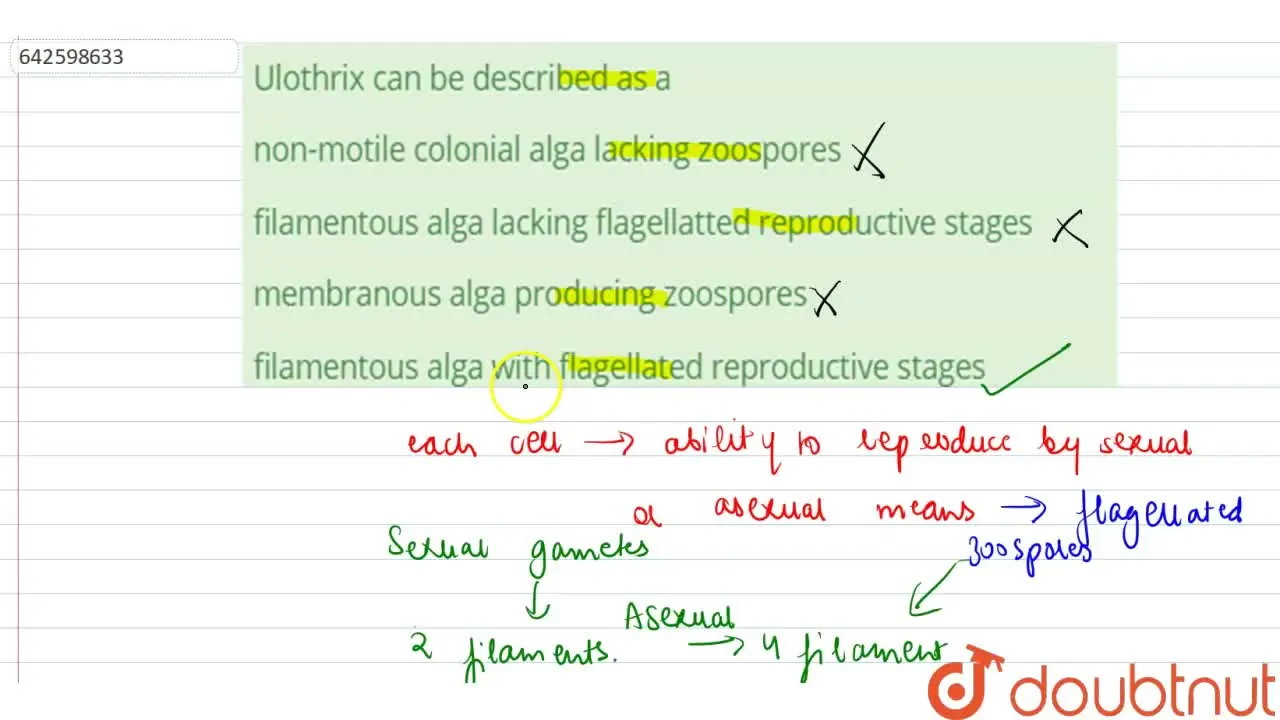 642598633
Ulothrix can be described as a
non-motile colonial alga lacking zoospores X
filamentous alga lacking flagellatted reproductive stages X
membranous alga producing zoospores X
filamentous alga with flagellated reproductive stages ✓
each cell → ability to reproduce by sexual
or asexual means → flagellated
Sexual gametes zoospores
↓
2 filaments. Asexual → 4 filament
doubtnut